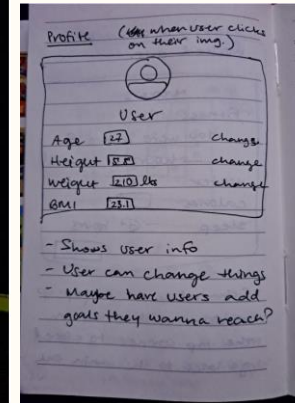 Profile (when user clicks
on their img.)
User
Age 27 change
Height 5.5 change
Weight 210 lbs change
BMI 23.1
- Shows user info
- User can change things
- Maybe have users add
goals they wanna reach?